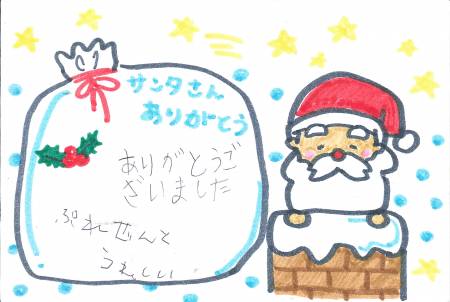 サンタさん
ありがとう
ありがとうご
ざいました
ぷれぜんと
うれしい